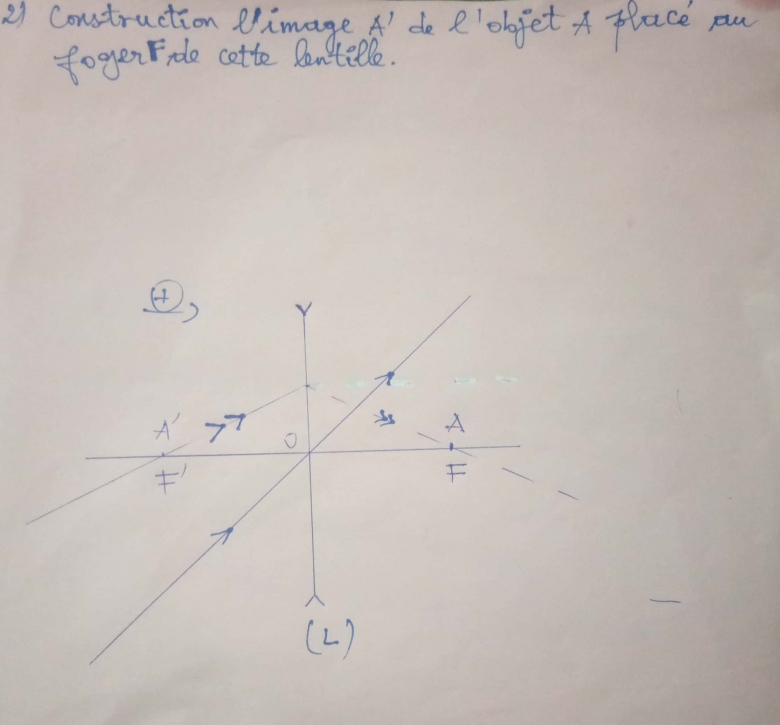 2) Construction l'image A' de l'objet A placé au
foyer F, de cette lentille.
+
A'
O
A
F'
F
(L)